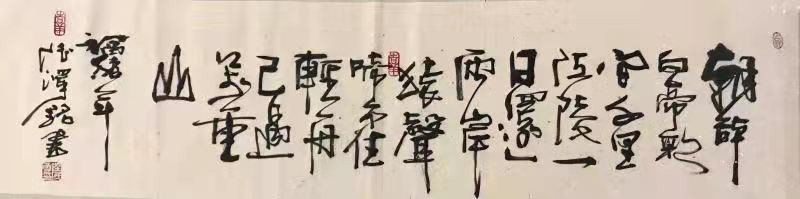 朝辭
白帝彩
云间千里
江陵一
日還
兩岸
猿聲
啼不住
輕舟
已過
萬重
山
年
書